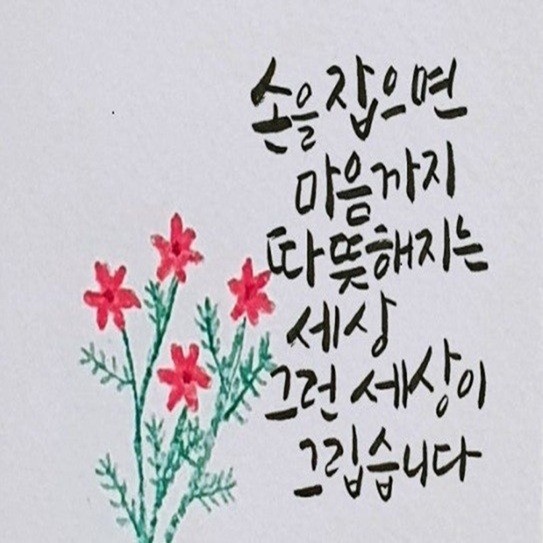 손을 잡으면
마음까지
따뜻해지는
세상
그런 세상이
그립습니다